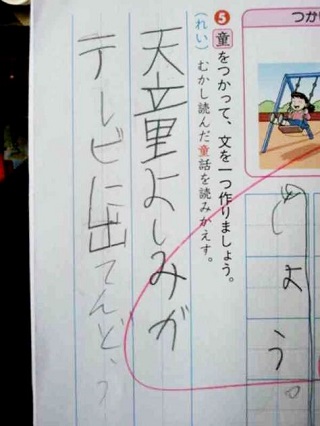 つかい
5 童をつかって、文を一つ作りましょう。
(れい) むかし読んだ童話を読みかえす。
天立里よしみが
テレビに出てんど、
よう。